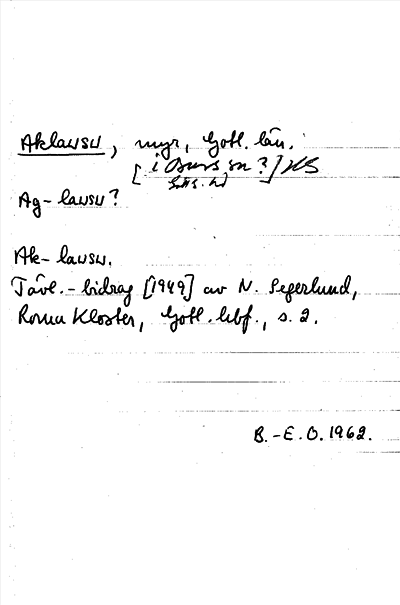 Aklausu, myr, Gotl. län.
[i Burs sn?] HS
Ag-lausu?
Ak-lausu.
Tävl.-bidrag [1949] av N. Segerlund,
Roma Kloster, Gotl. hbf., s. 2.
B.-E. O. 1962.